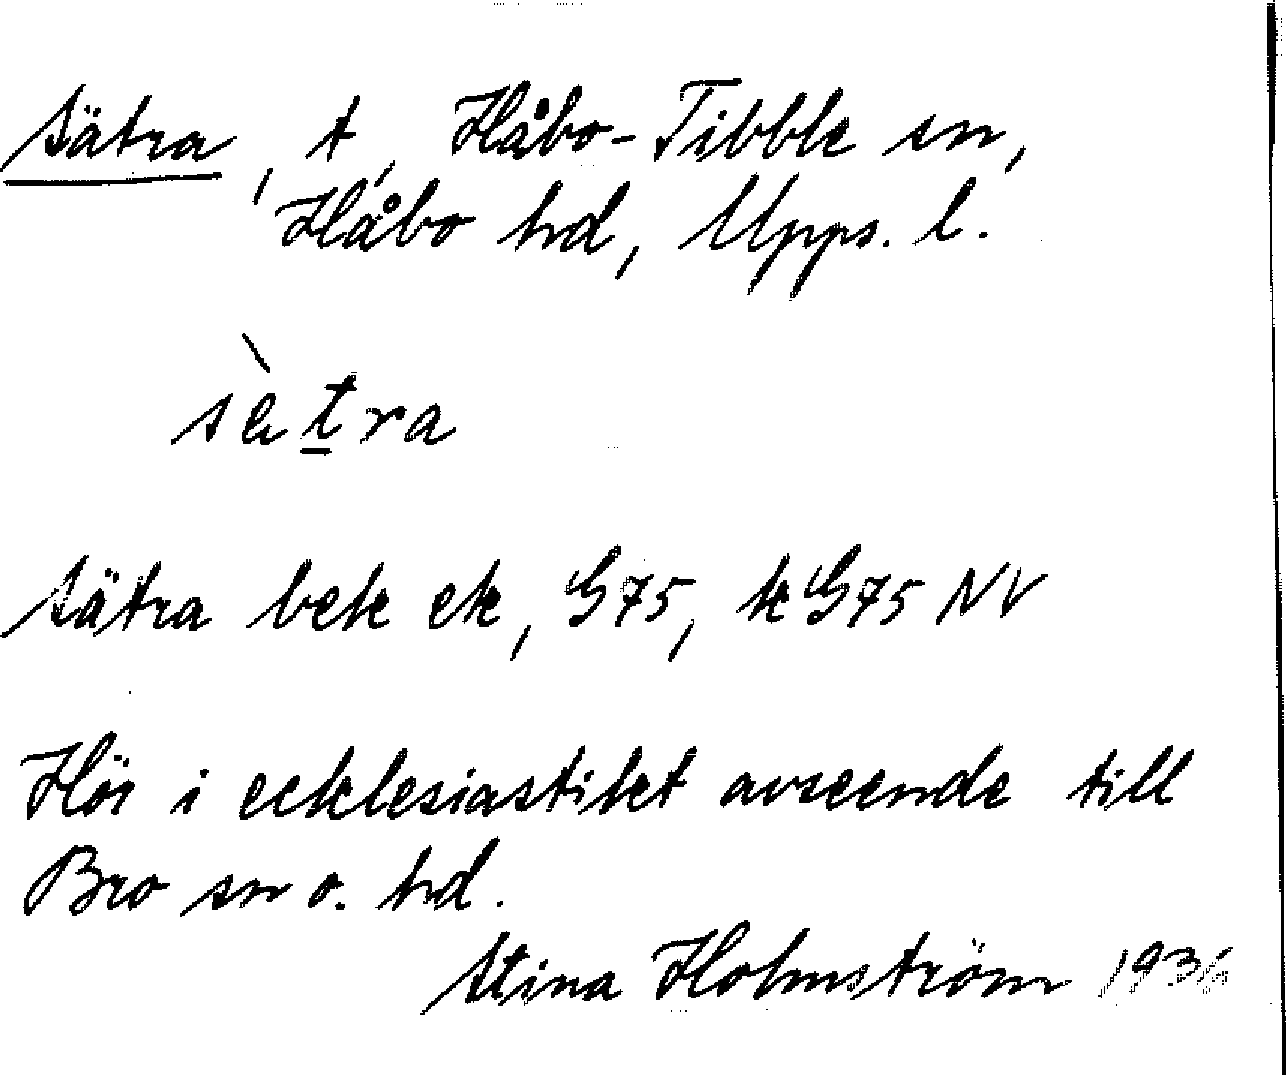 Sätra, t, Håbo-Tibble sn,
Håbo hd, Upps. l.
sètra
Sätra bek ek, G75, kG75 NV
Hör i ecklesiastiket avseende till
Bro sn o. hd.
Stina Holmström 1936